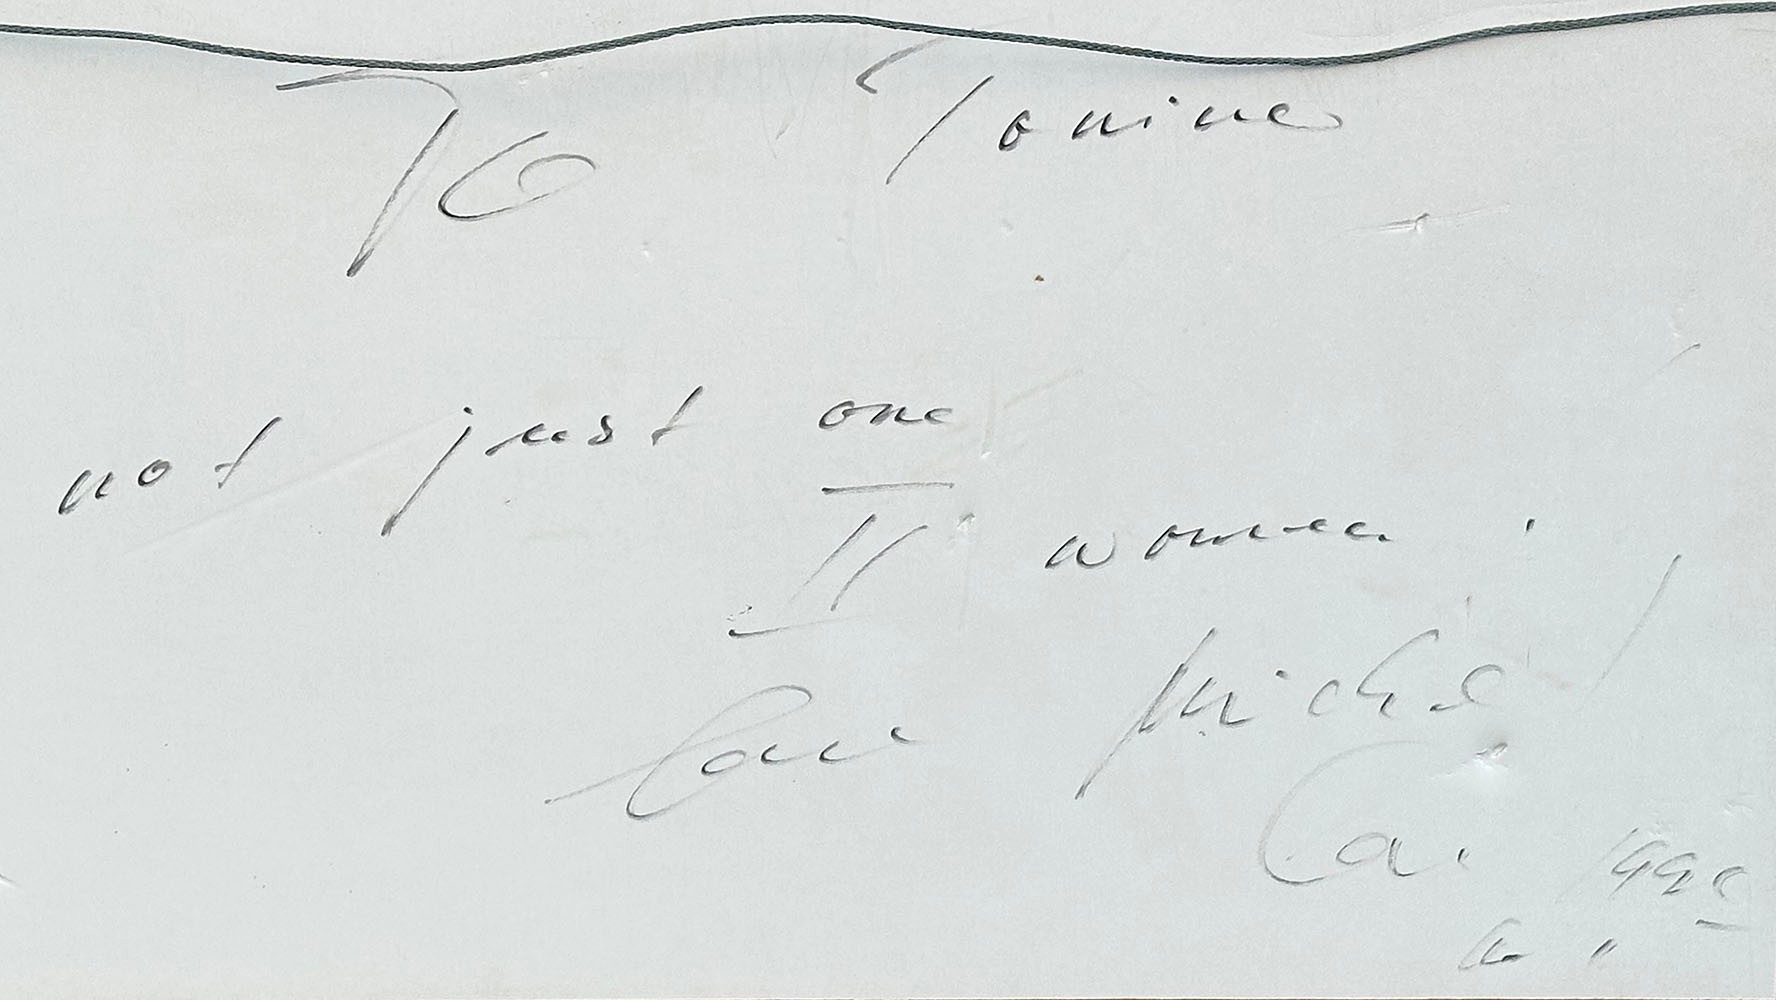 To Yonine
not just one
II women.
Love Michel
Ca. 199